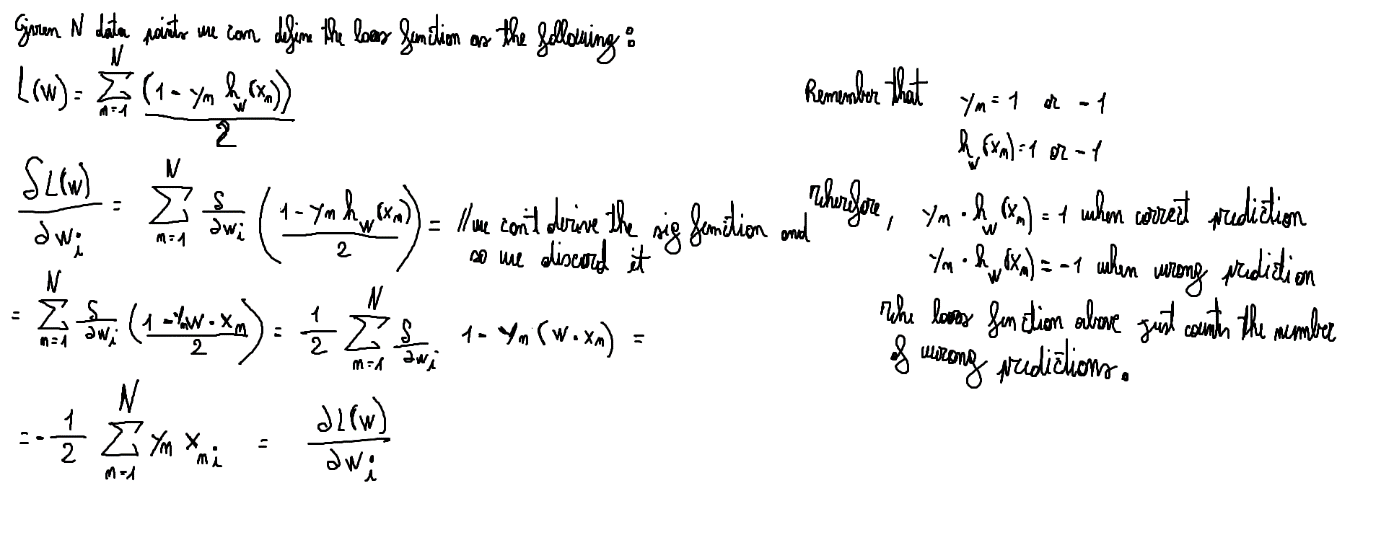 Given N data points we can define the loss function as the following:
L(w) = \sum_{n=1}^{N} \frac{(1 - y_n h_w(x_n))}{2}
\frac{\delta L(w)}{\partial w_i} = \sum_{n=1}^{N} \frac{\delta}{\partial w_i} \left( \frac{1 - y_n h_w(x_n)}{2} \right) = // we can't derive the sig function and
so we discard it
= \sum_{n=1}^{N} \frac{\delta}{\partial w_i} \left( \frac{1 - y_n w \cdot x_n}{2} \right) = \frac{1}{2} \sum_{n=1}^{N} \frac{\delta}{\partial w_i} 1 - y_n (w \cdot x_n) =
= - \frac{1}{2} \sum_{n=1}^{N} y_n x_{ni} = \frac{\partial L(w)}{\partial w_i}
Remember that y_n = 1 or -1
h_w(x_n) = 1 or -1
Therefore, y_n \cdot h_w(x_n) = 1 when correct prediction
y_n \cdot h_w(x_n) = -1 when wrong prediction
The loss function above just counts the number
of wrong predictions.